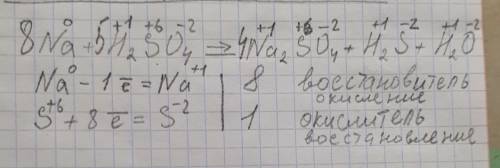 8Na⁰+5H₂⁺¹S⁺⁶O₄⁻² ⇒ 4Na₂⁺¹S⁺⁶O₄⁻²+H₂⁺¹S⁻²+H₂⁺¹O⁻²
Na⁰ - 1ē = Na⁺¹ | 8 восстановитель
окисление
S⁺⁶ + 8ē = S⁻² | 1 окислитель
восстановление